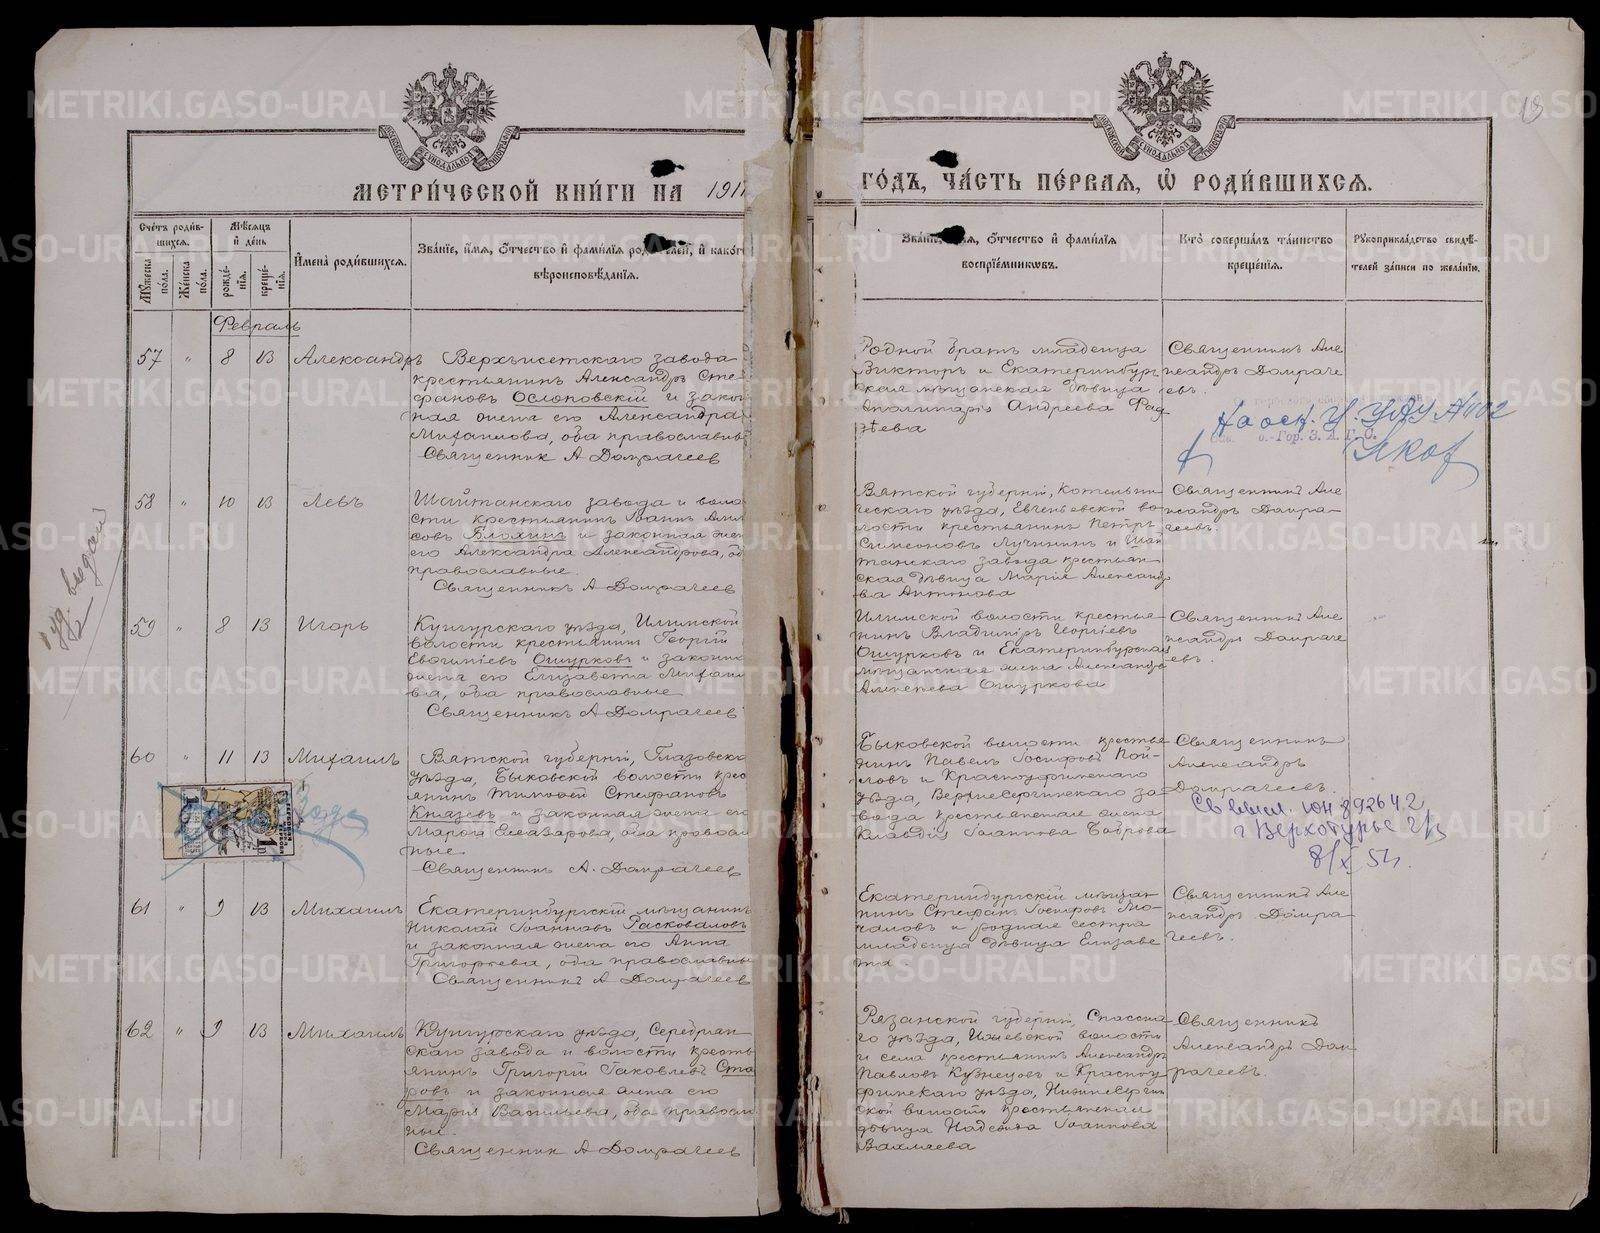 МЕТРИЧЕСКОЙ КНИГИ НА 1911
ГОДЪ, ЧАСТЬ ПЕРВАЯ, Ѡ РОДИВШИХСЯ.
Счетъ родив-
шихся.
Мѣсяцъ
и день
Мужеска
пола.
Женска
пола.
рожде-
нія.
креще-
нія.
Имена родившихся.
Званіе, имя, отчество и фамилія родителей, и каког
вѣроисповѣданія.
отчество и фамилія
воспріемниковъ.
Кто совершалъ таинство
крещенія.
Рукоприкладство свидѣ-
телей записи по желанію.
19
Февраль
57 " 8 13 Александръ
Верхъисетскаго завода
крестьянинъ Александръ Сте-
фановъ Ослоповскій и закон
ная жена его Александра
Михаилова, оба православны
Священник А Домрачеев
Родной братъ младенца
Викторъ и Екатеринбург
ская мѣщанская дѣвица
Аполлинарія Андреева Фад
ѣева
Священникъ Але
ксандръ Домраче
евъ.
о.-Гор. З. А. Г. С.
58 " 10 13 Левъ
Шайтанскаго завода и воло
сти крестьянинъ Іоаннъ
Блохинъ и законная жен
его Александра Александрова, об
православные.
Священникъ А Домрачеев
Вятской губерніи, Котельни
ческаго уѣзда, во
лости крестьянинъ Петръ
Симеоновъ Лучининъ и Шай
танскаго завода крестьян-
ская дѣвица Марія Александр
ва Антипова
Священникъ Але
ксандръ Домра-
чеевъ.
59 " 8 13 Игорь
Кунгурскаго уѣзда, Илимской
волости крестьянинъ Георгій
Евѳиміевъ Ошурковъ и законна
жена его Елизавета Михаил
ва, оба православные
Священникъ А Домрачеев
Илимской волости крестья-
нинъ Владимиръ Георгіевъ
Ошурковъ и Екатеринбургская
мѣщанская жена Александра
Алексѣева Ошуркова
Священникъ Але
ксандръ Домраче
евъ.
60 " 11 13 Михаилъ
Вятской губерніи, Глазовско
уѣзда, Быковской волости крес
янинъ Тимоѳей Стефановъ
Князевъ и законная жена его
Марѳа Елеазарова, оба правосл
ные
Священникъ А. Домрачеев
Быковской волости крестья
нинъ Павелъ Іосифовъ
ловъ и Красноуфимскаго
уѣзда, Верхнесергинскаго за
вода крестьянская жена
Клавдія Іоаннова Боброва
Священникъ
Александръ
Домрачеевъ.
г Верхотурье
61 " 9 13 Михаилъ
Екатеринбургскій мѣщанинъ
Николай Іоанновъ Расковаловъ
и законная жена его Анна
Григорьева, оба православны
Священникъ А Домрачеев
Екатеринбургскій мѣщан-
нинъ Стефанъ Іосифовъ Мо-
чаловъ и родная сестра
младенца дѣвица Елизаве
та
Священникъ Але
ксандръ Домра-
чеевъ.
62 " 9 13 Михаилъ
Кунгурскаго уѣзда, Серебрян-
скаго завода и волости кресть
янинъ Григорій Іаковлевъ Ста
ровъ и законная жена его
Марія Васильева, оба правосл
ные.
Священник А Домрачеев
Рязанской губерніи, Спасска
го уѣзда, Ижевской волости
и села крестьянинъ Александръ
Павловъ Кузнецовъ и Красноу
фимскаго уѣзда, Нижнесергин
ской волости крестьянская
дѣвица Надежда Іоаннова
Вахмяева
Священникъ
Александръ Дом
рачеевъ.